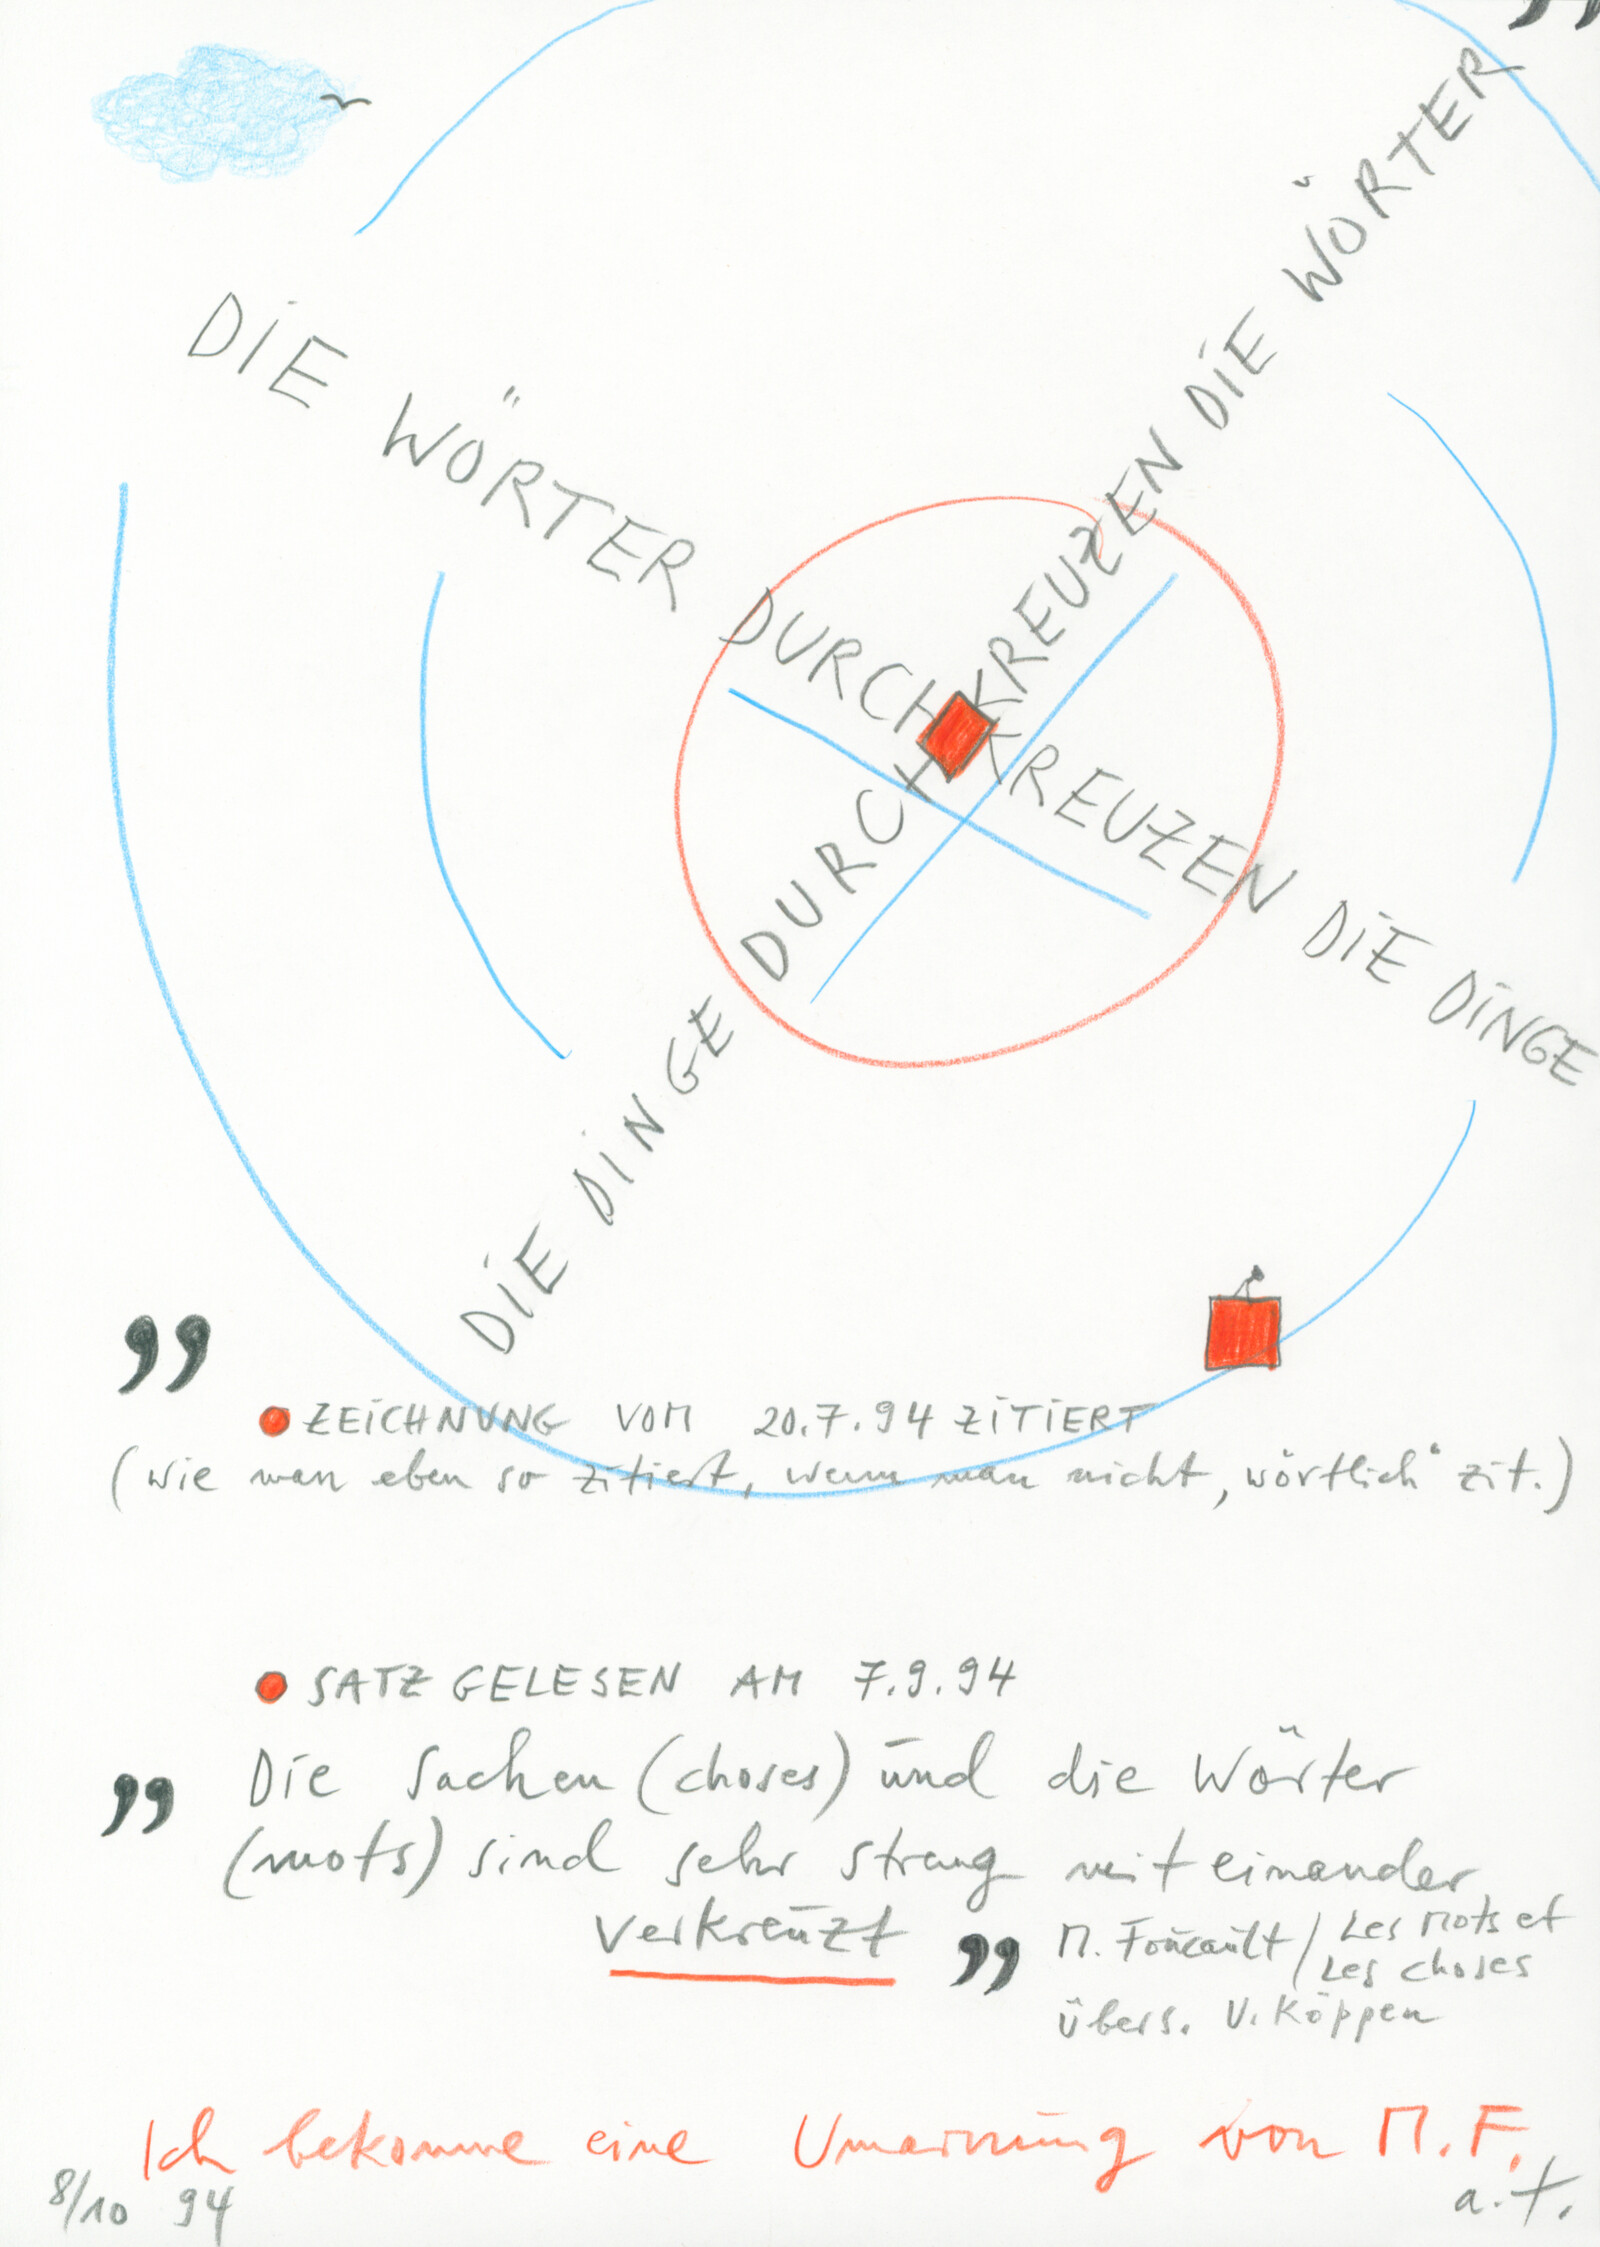 "
DIE WÖRTER DURCHKREUZEN DIE DINGE
DIE DINGE DURCHKREUZEN DIE WÖRTER
"
ZEICHNUNG VOM 20.7.94 ZITIERT
(wie man eben so zitiert, wenn man nicht „wörtlich“ zit.)
SATZ GELESEN AM 7.9.94
„Die Sachen (choses) und die Wörter
(mots) sind sehr streng miteinander
verkreuzt” M. Foucault / Les Mots et
Les choses
übers. U. Köppen
Ich bekomme eine Umarmung von M.F.
8/10 94 a.t.